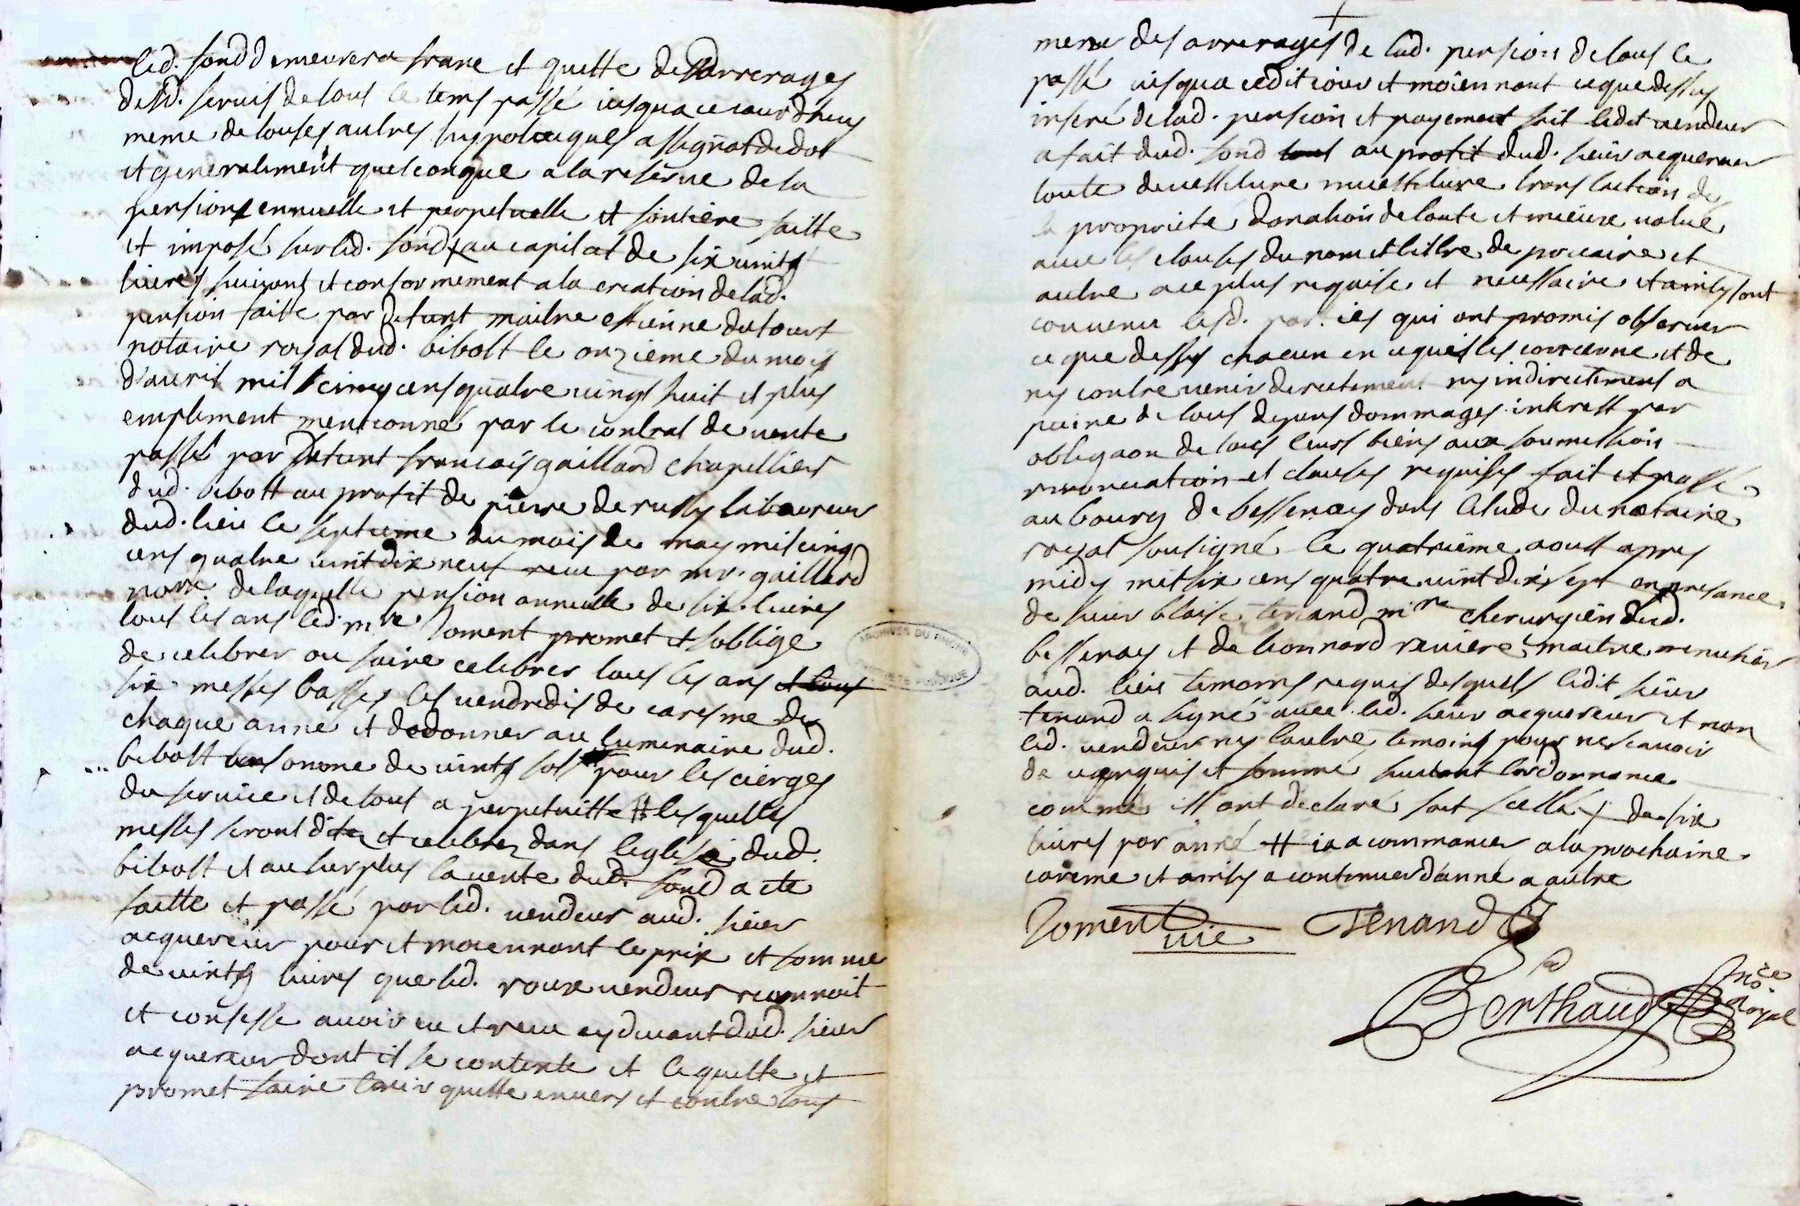 led. fond demeurera franc et quitte des arrerages
desd. servis de tous le tems passé jusqua ce jourdhuy
meme de touses autres hypoteques assignat de dot
et generalement quelconque a la reserve de la
pension ennuelle et perpetuelle et fontiere faitte
et imposé sur led. fond au capital de six vints
livres suivant et conformement a la creation de lad.
pension faitte par defunt maitre estienne dutour
notaire royal dud. bibost le onzieme du mois
d'avril mil cinq cens quatre vingt huit et plus
emplement mentionné par le contrat de vente
passé par defunt francois gaillard chapellier
dud. bibost au profit de pierre de russy laboureur
dud. lieu le septieme du mois de may mil cinq
cens quatre vint dix neuf receu par mr. gaillard
nore de laquelle pension annuelle de six livres
tous les ans led. mre Joment promet et soblige
de celebrer ou faire celebrer tous les ans et tous
six messes basses les vendredis de caresme de
chaque anné et de donner au luminaire dud.
bibost de vints sols pour les cierges
du service et de tout a perpetuitte # lesquelles
messes seront dites et celebrez dans leglise dud.
bibost et au surplus la vente dud. fond a ete
faitte et passé par led. vendeur aud. sieur
acquereur pour et moiennant le prix et somme
de vints livres que led. roux vendeur reconnoit
et confesse avoir eu et receu cy devant dud. sieur
acquereur dont il se contente et le quitte et
promet faire tenir quitte envers et contre tous
meme des arrerages de lad. pension de tous le
passé jusqua cedit jour et moiennant ce que dessus
inseré de lad. pension et payement fait ledit vendeur
a fait dud. fond tout au profit dud. sieur acquereur
toute devestiture investiture translation de
la propriete donation de toute et mieux value
avec les clauses du nom et tittre de precaire et
autre a ce plus requise et necessaire et ainsy sont
convenu lesd. parties qui ont promis observer
ce que dessus chacun en ce quil les concerne et de
ny contrevenir directement ny indirectement a
peine de tous depens dommages interest par
obligaon de tous leurs biens aux soumission
renonciation et clauses requises fait et passé
au bourg de bessenay dans letude du notaire
royal sousigné le quatrieme aoust apres
midy mil six cens quatre vint dix sept en presance
de sieur blaise tenand mre cherurgien dud.
bessenay et de leonnard reviere maitre menusier
aud. lieu temoins requis desquels ledit sieur
tenand a signé avec led. sieur acquereur et non
led. vendeur ny lautre temoins pour ne scavoir
de ce enquis et sommé suivant lordonnance
comme ils ont declaré soit scellé / de six
livres par anné # a commancer a la prochaine
careme et ainsy a continuer danné a autre
Joment vic Tenand
Berthaud nore Royal
ARCHIVES DU RHÔNE